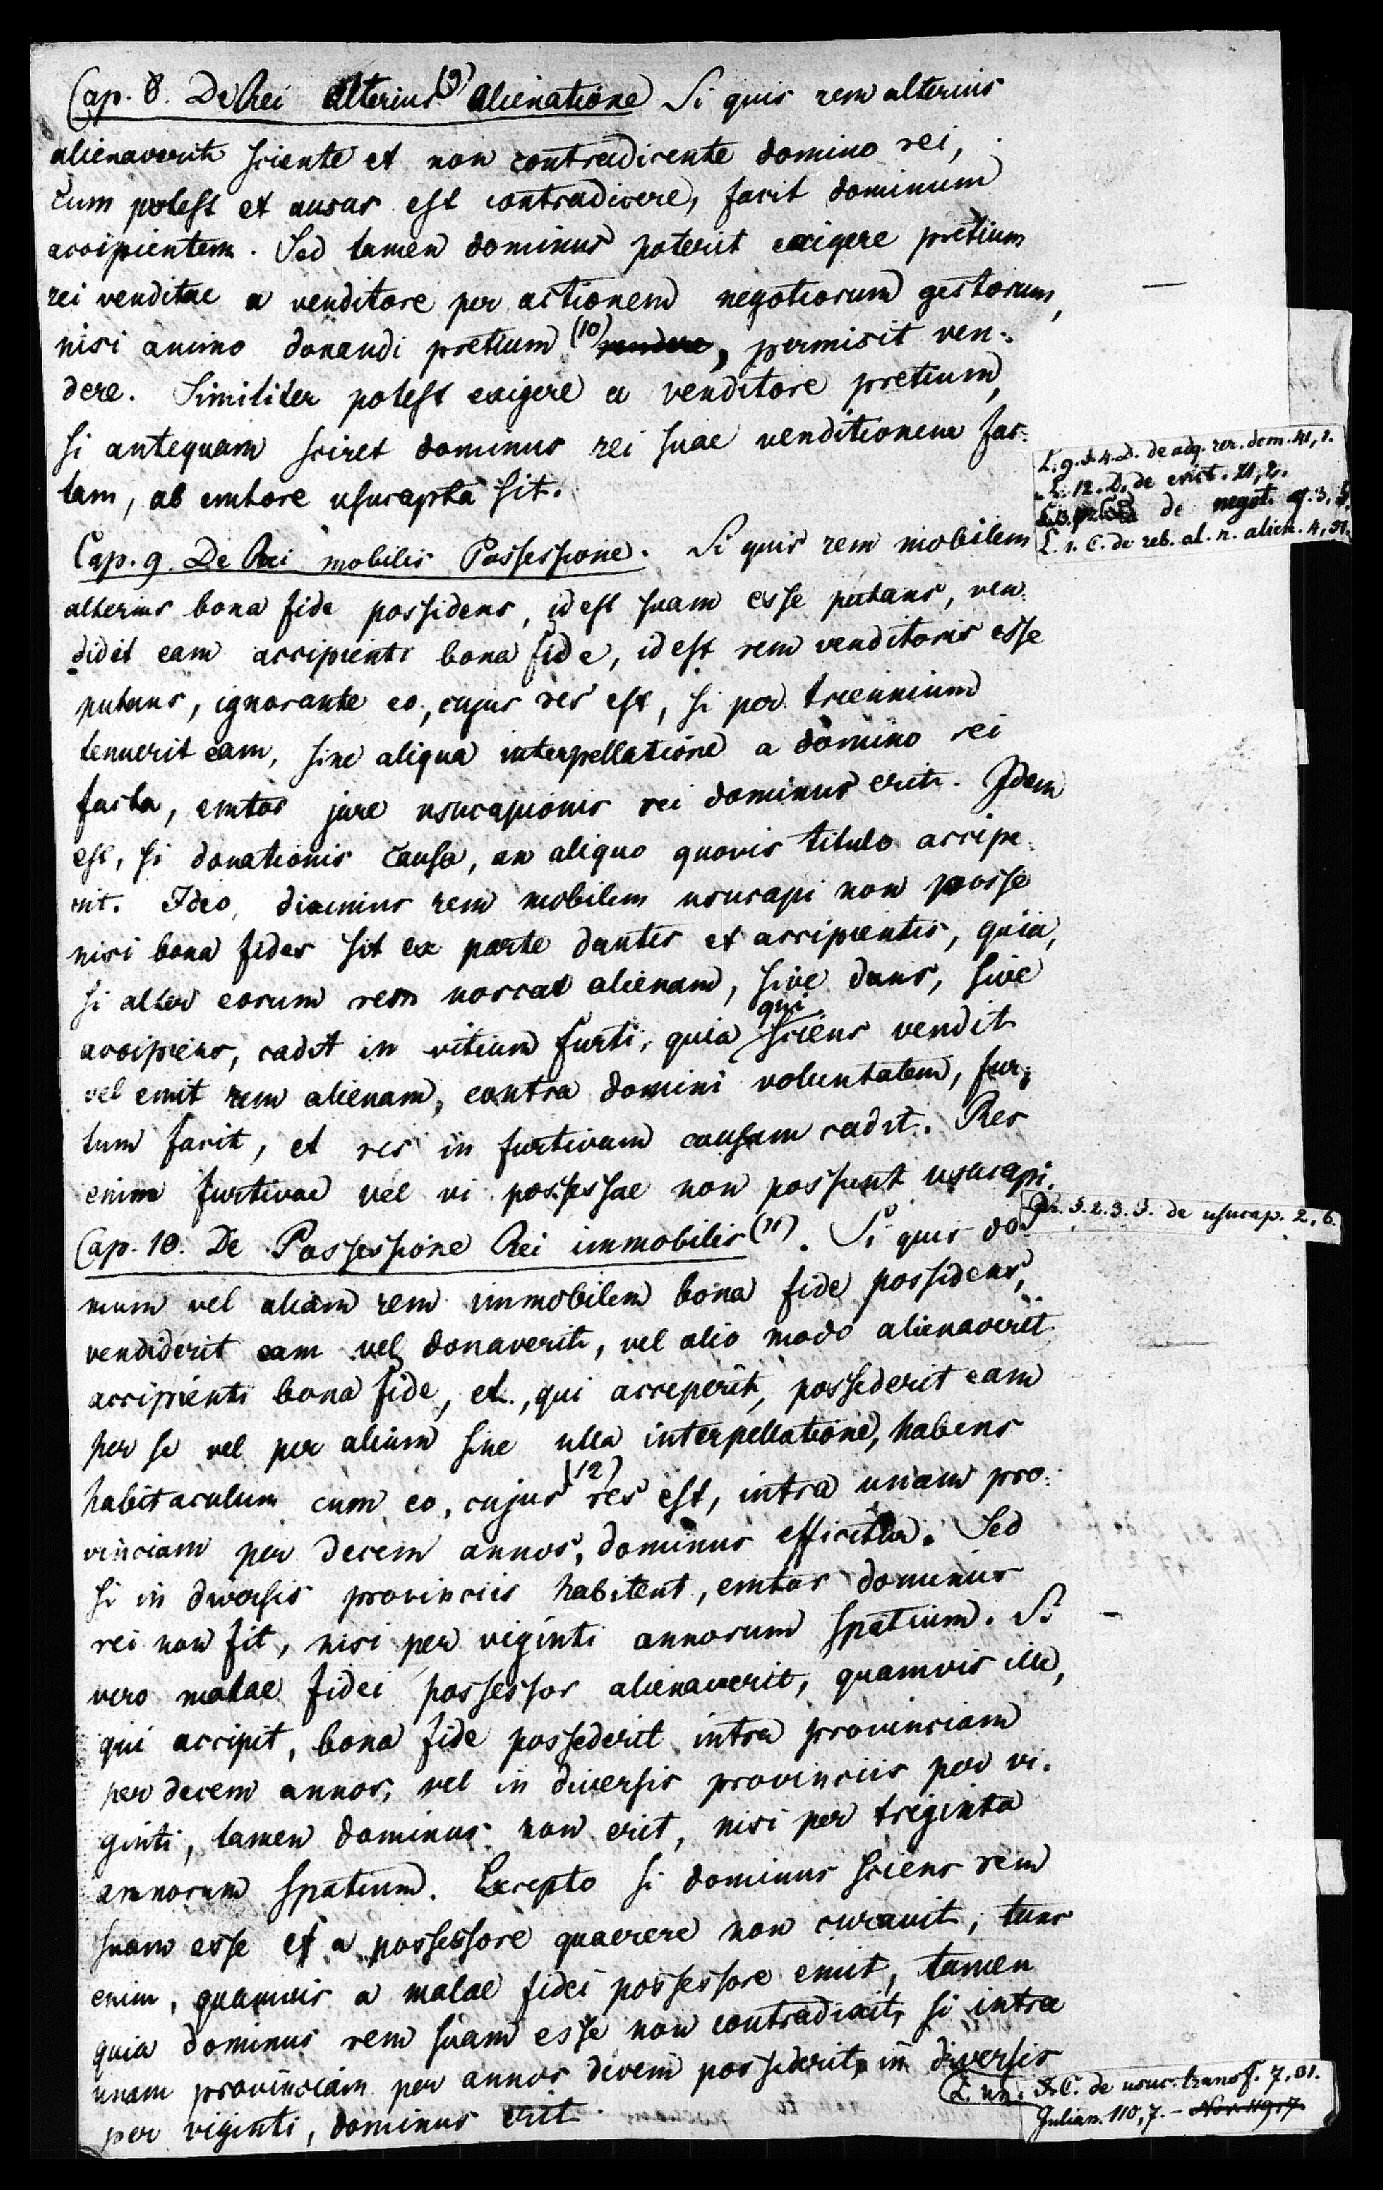 Cap. 8. De Rei alterius (9) alienatione Si quis rem alterius
alienaverit sciente et non contradicente domino rei,
cum potest et ausus est contradicere, facit dominum
accipientem. Sed tamen dominus poterit exigere pretium
rei venditae a venditore per actionem negotiorum gestorum,
nisi animo donandi pretium (10) vendere, permisit ven-
dere. Similiter potest exigere a venditore pretium,
si antequam sciret dominus rei suae venditionem fac-
tam, ab emtore usucapta sit.
L. 9. §. 4. D. de adq. rer. dom. 41, 1.
L. 12. D. de evict. 21, 2.
de negot. g. 3, 5.
L. 1. C. de reb. al. n. alien. 4, 51.
Cap. 9. De Rei mobilis Possessione. Si quis rem mobilem
alterius bona fide possidens, id est suam esse putans, ven-
didit eam accipienti bona fide, id est rem venditoris esse
putans, ignorante eo, cujus res est, si per triennium
tenuerit eam, sine aliqua interpellatione a domino rei
facta, emtor jure usucapionis rei dominus erit. Idem
est, si donationis causa, an aliquo quovis titulo accipe-
rit. Ideo diximus rem mobilem usucapi non posse
nisi bona fides sit ex parte dantis et accipientis, quia,
si alter eorum rem noscat alienam, sive dans, sive
accipiens, cadit in vitium furti, quia qui sciens vendit
vel emit rem alienam, contra domini voluntatem, fur-
tum facit, et res in furtivam causam cadit. Res
enim furtivae vel vi possessae non possunt usucapi.
pr. §. 2. 3. I. de usucap. 2, 6.
Cap. 10. De Possessione Rei immobilis (11). Si quis do-
mum vel aliam rem immobilem bona fide possidens,
vendiderit eam vel donaverit, vel alio modo alienaverit
accipienti bona fide, et, qui acceperit, possederit eam
per se vel per alium sine ulla interpellatione, habens
habitaculum cum eo, cujus (12) res est, intra unam pro-
vinciam per decem annos, dominus efficitur. Sed
si in diversis provinciis habitent, emtor dominus
rei non fit, nisi per viginti annorum spatium. Si
vero malae fidei possessor alienaverit, quamvis ille,
qui accipit, bona fide possederit intra provinciam
per decem annos, vel in diversis provinciis per vi-
ginti, tamen dominus non erit, nisi per triginta
annorum spatium. Excepto si dominus sciens rem
suam esse et a possessore quaerere non curavit, tunc
enim, quamvis a malae fidei possessore emit, tamen
quia dominus rem suam esse non contradixit, si intra
unam provinciam per annos decem possiderit, in diversis
per viginti, dominus erit.
L. un. §. C. de usuc. transf. 7, 31.
Julian. 110, 7. - Nov. 119, 7.